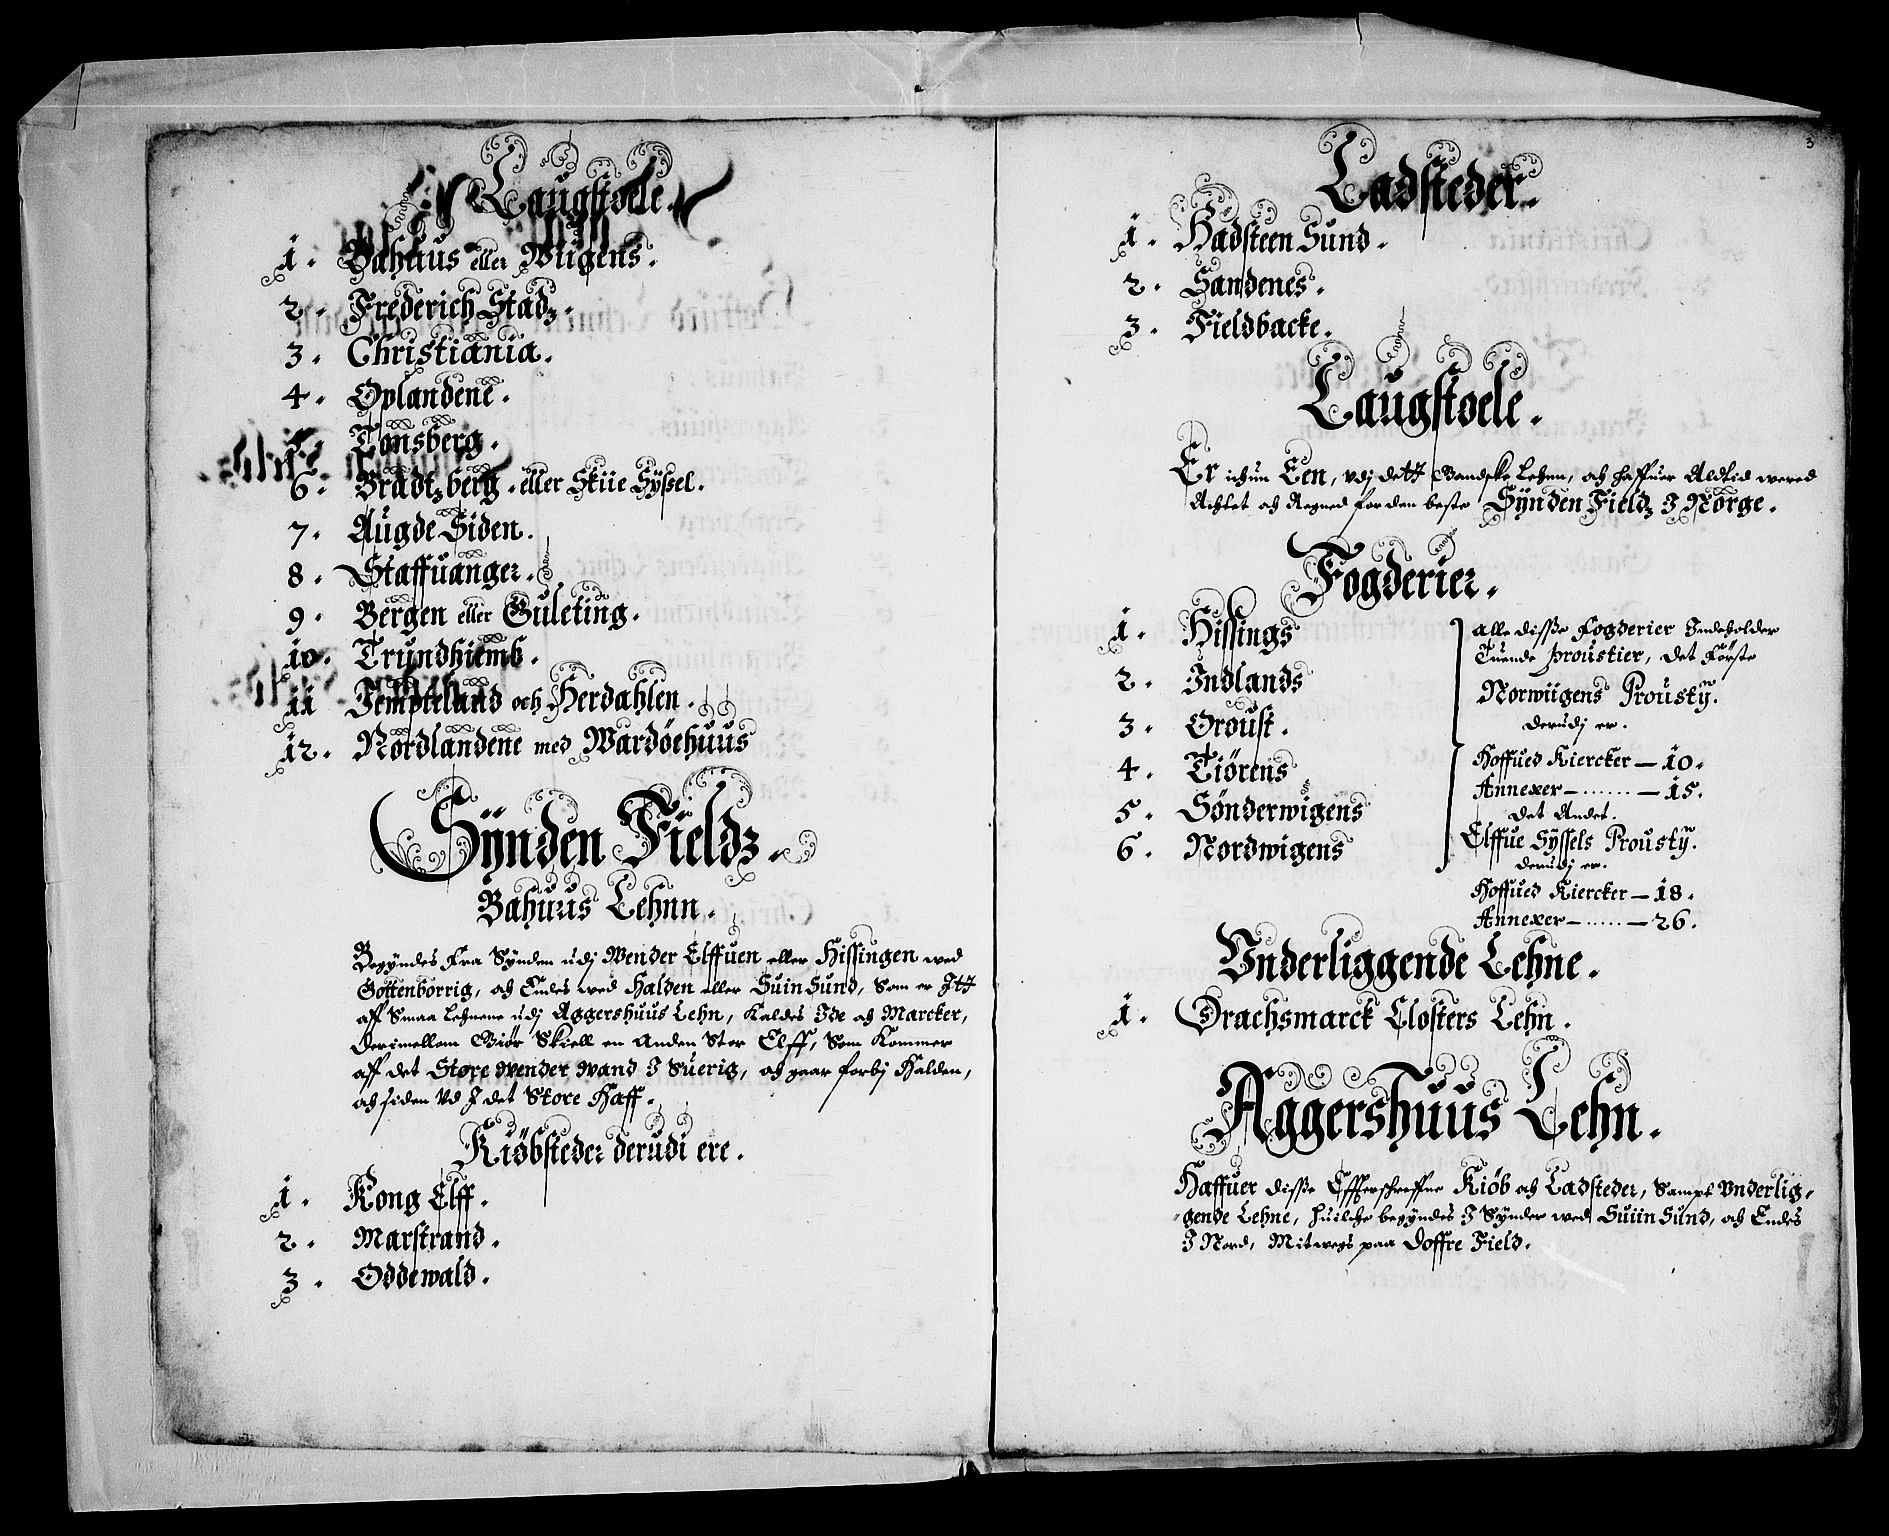 Laugstoele.
1. Bahuus eller Wiigens.
2. Frederich Stadz.
3. Christiania.
4. Oplandene.
5. Tønsberg.
6. Bradtzberg. eller Skiie Sÿssel.
7. Augde Siden.
8. Staffuanger.
9. Bergen eller Guleting.
10. Trundhiemb.
11 Jempteland och Herdahlen.
12. Nordlandene med Wardöehuus
Sÿnden Fieldz.
Bahuus Lehnn.
Begÿndes Fra Sÿnden udj Wender Elffuen eller Hissingen wed
Gottenborrig, och Endes wed Halden eller Suin Sund, Som er Itt
aff Smaa Lehnene udj Aggershuus Lehn, Kaldes Ide och Marcker,
Derimellom Giör Skiell en Anden Stor Elff, Som Kommer
aff det Store Wender Wand I Suerig, och gaar forbj Halden,
och siden Vd I det Store Haff.
Kiöbsteder derudi ere.
1. Kong Elff.
2. Marstrand.
3. Oddewald.
3
Ladsteder.
1. Hadsteen Sund.
2. Sandenes.
3. Fieldbacke.
Laugstoele.
Er ichun Een, vdj dett Gandske Lehnn, och haffuer Aldtid wered
Achtet och Regned for den beste Sÿnden Fieldz I Norge.
Fogderier.
1. Hissings
2. Indlands
3. Oroust.
4. Tiörens
5. Sönderwigens
6. Nordwigens
alle disse Fogderier Indeholder
Tuende Proustier, det Förste
Norwiigens Proustÿ.
derudj er.
Hoffued Kiercker — 10.
Annexer — ...... — 15.
det Andet.
Elffue Sÿssels Proustÿ.
derudj er.
Hoffued Kiercker — 18.
Annexer — ..... — 26.
Vnderliggende Lehne.
1. Drachsmarck Closters Lehn.
Aggershuus Lehn.
Haffuer disse Effterschreffne Kiöb och Ladsteder, Sampt Vnderlig-
-gende Lehne, huilche begÿndes I Sÿnder wed Suiin Sund, och Endes
I Nord, Mitwegs paa Doffre Field.